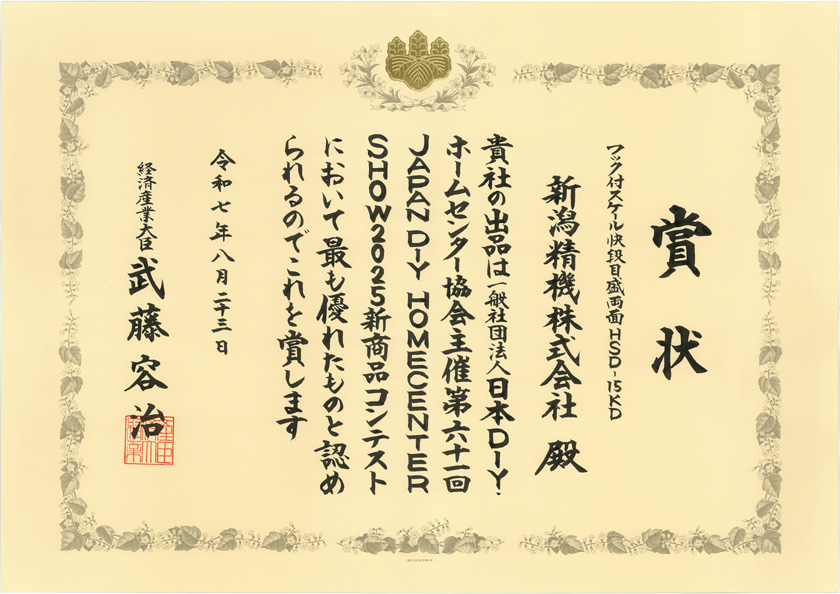 賞状
フック付スケール快段目盛両面HSD-15KD
新潟精機株式会社 殿
貴社の出品は一般社団法人日本DIY・
ホームセンター協会主催第六十一回
JAPAN DIY HOMECENTER
SHOW2025新商品コンテスト
において最も優れたものと認め
られるのでこれを賞します
令和七年八月二十三日
経済産業大臣 武藤容治